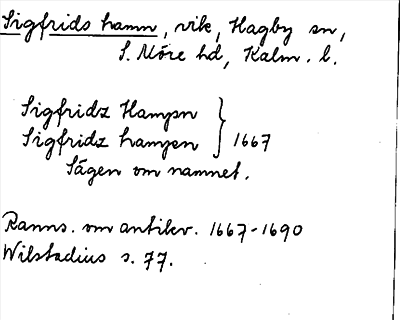 Sigfrids hamn, vik, Hagby sn,
S. Möre hd, Kalm. l.
Sigfridz Hampn
Sigfridz hampen } 1667
Sägen om namnet.
Ranns. om antikv. 1667-1690
Wilstadius s. 77.